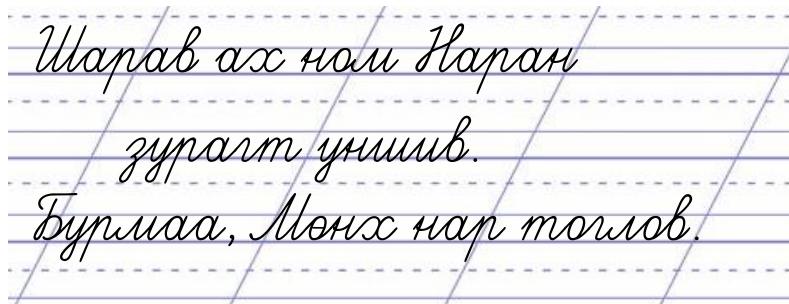 Шарав ах ном Наран
зурагт уншив.
Бурмаа, Мөнх нар тоглов.